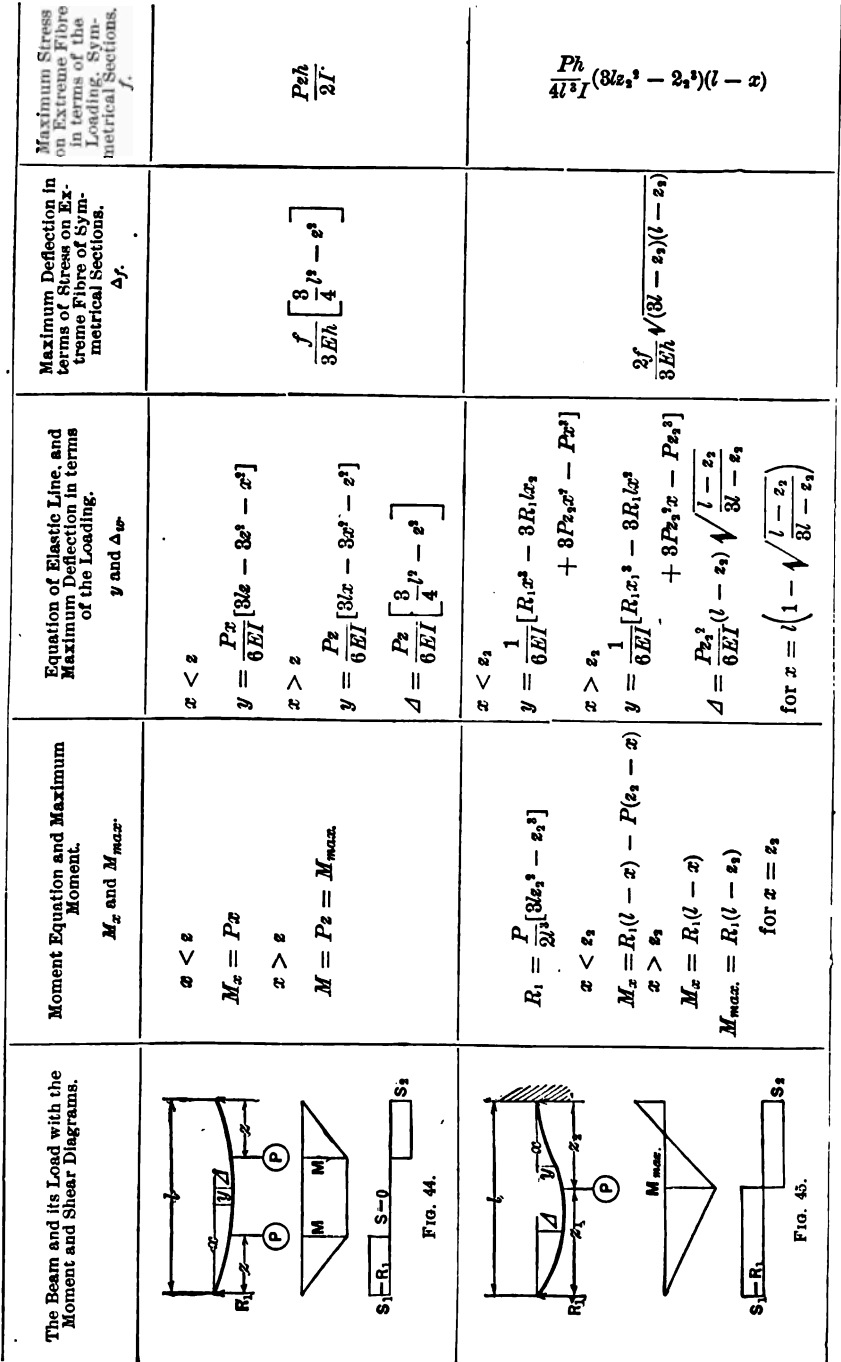 The Beam and its Load with the
Moment and Shear Diagrams.
Moment Equation and Maximum
Moment.
Mx and Mmax.
Equation of Elastic Line, and
Maximum Deflection in terms
of the Loading.
y and Δw.
Maximum Deflection in
terms of Stress on Ex-
treme Fibre of Sym-
metrical Sections.
Δf.
Maximum Stress
on Extreme Fibre
in terms of the
Loading. Sym-
metrical Sections.
f.
l
x
y Δ
z
z
R₁
P
P
M
M
S₁=R₁
S=0
S₂
FIG. 44.
x < z
Mx = Px
x > z
M = Pz = Mmax.
x < z
y = Px/6EI [3lz − 3z² − x²]
x > z
y = Pz/6EI [3lx − 3x² − z²]
Δ = Pz/6EI [3/4 l² − z²]
f/3Eh [3/4 l² − z²]
Pzh/2I.
l
Δ
x
y
R₁
z₁
z₂
P
M max.
S₁=R₁
S₂
FIG. 45.
R₁ = P/2l³ [3lz₂² − z₂³]
x < z₂
Mx = R₁(l − x) − P(z₂ − x)
x > z₂
Mx = R₁(l − x)
Mmax. = R₁(l − z₂)
for x = z₂
x < z₂
y = 1/6EI [R₁x³ − 3R₁lx₂
+ 3Pz₂x² − Px³]
x > z₂
y = 1/6EI [R₁x₁³ − 3R₁lx²
+ 3Pz₂²x − Pz₂³]
Δ = Pz₂²/6EI (l − z₂) √(l − z₂/3l − z₂)
for x = l(1 − √(l − z₂/3l − z₂))
2f/3Eh √(3l − z₂)(l − z₂)
Ph/4l³I (3lz₂² − 2₂³)(l − x)